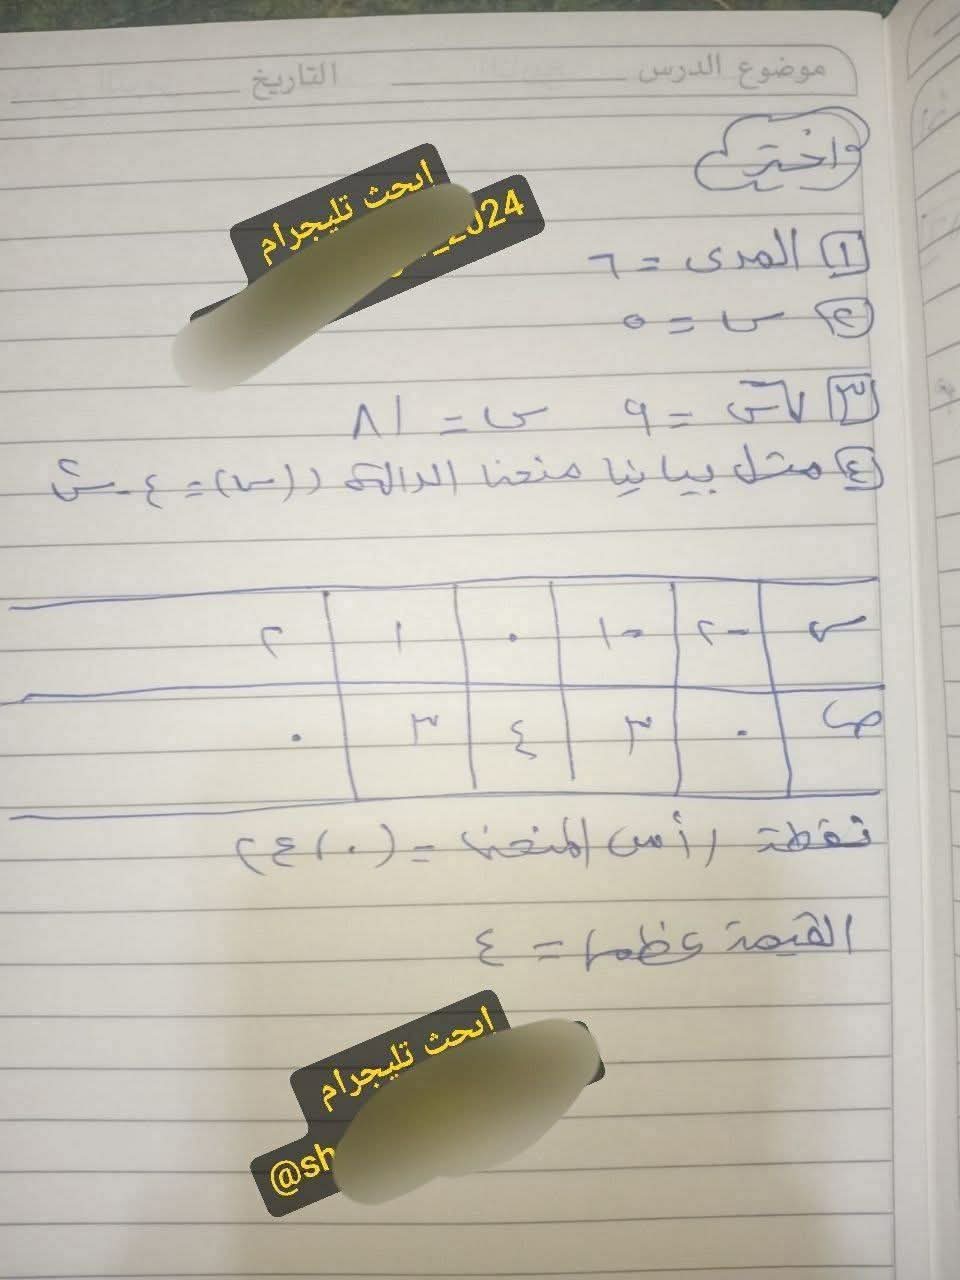 موضوع الدرس التاريخ
اختر
ابحث تليجرام
_2024
١ المدى = ٦
٢ س = ٥
٣ √س = ٩ س = ٨١
٤ مثل بيانيا منحنا الدالة د(س) = ٤ - س٢
س -٢ -١ ٠ ١ ٢
ص ٠ ٣ ٤ ٣ ٠
نقطة رأس المنحنا = (٠،٤)
القيمة عظما = ٤
ابحث تليجرام
@sh